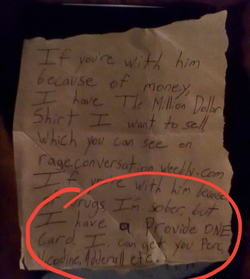 If you're with him
because of money,
I have The Million Dollar
Shirt I want to sell
Which you can see on
rageconversationweekly.com
If you're with him because
drugs I'm sober, but
I have a Provide ONE
Card. I can get you Perc,
Adderall etc.